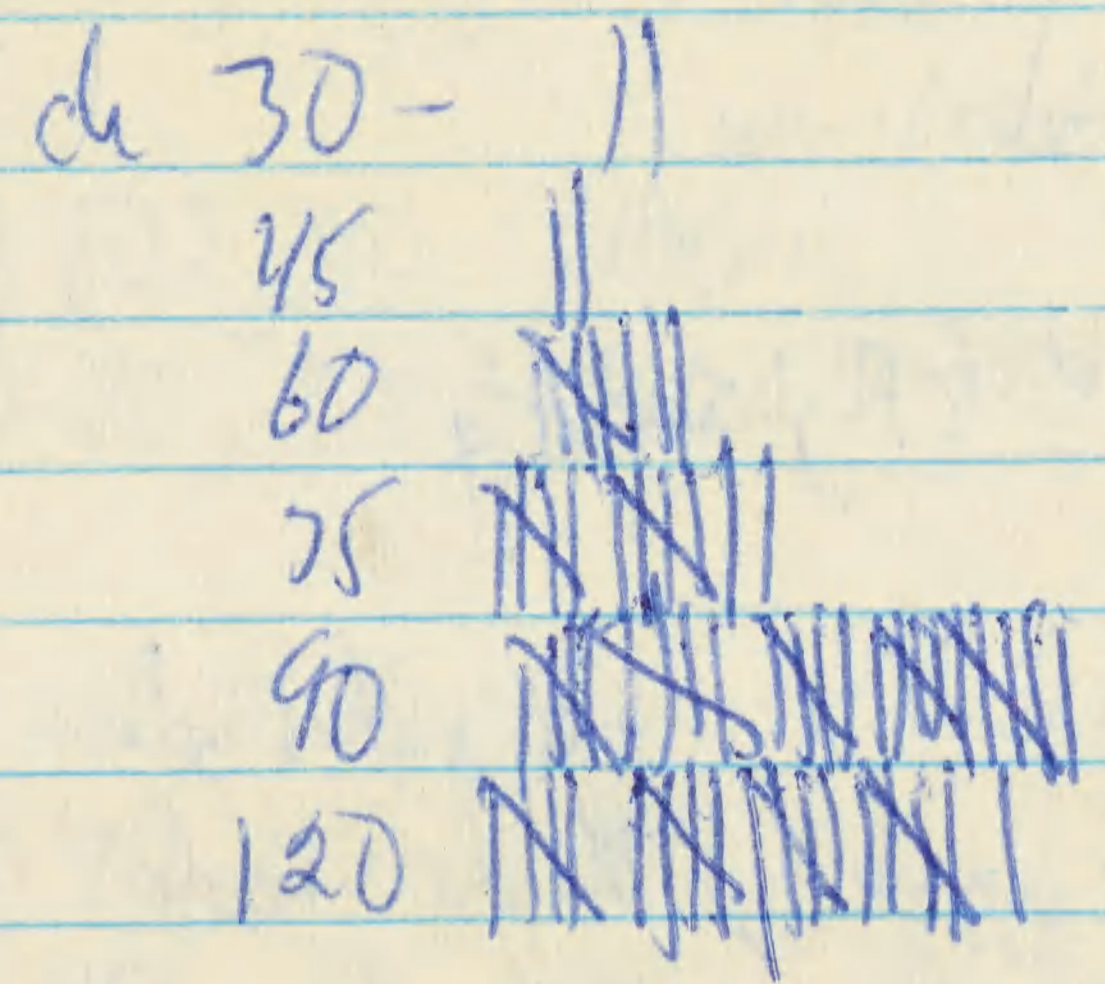 de 30 - ||
45
60
75
90
120